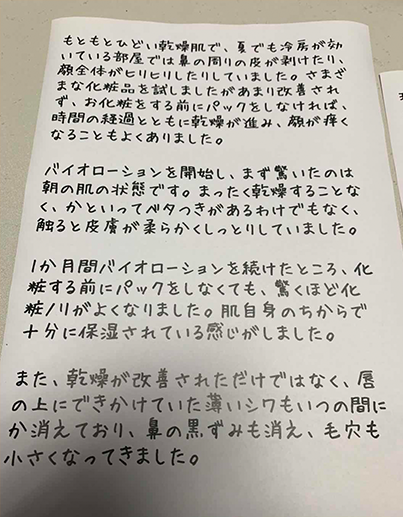 もともとひどい乾燥肌で、夏でも冷房が効
いている部屋では鼻の周りの皮が剥けたり、
顔全体がヒリヒリしたりしていました。さまざ
まな化粧品を試しましたがあまり改善され
ず、お化粧をする前にパックをしなければ、
時間の経過とともに乾燥が進み、顔が痒く
なることもよくありました。
バイオローションを開始し、まず驚いたのは
朝の肌の状態です。まったく乾燥することな
く、かといってベタつきがあるわけでもなく、
触ると皮膚が柔らかくしっとりしていました。
1か月間バイオローションを続けたところ、化
粧する前にパックをしなくても、驚くほど化
粧ノリがよくなりました。肌自身のちからで
十分に保湿されている感じがしました。
また、乾燥が改善されただけではなく、唇
の上にできかけていた薄いシワもいつの間に
か消えており、鼻の黒ずみも消え、毛穴も
小さくなってきました。